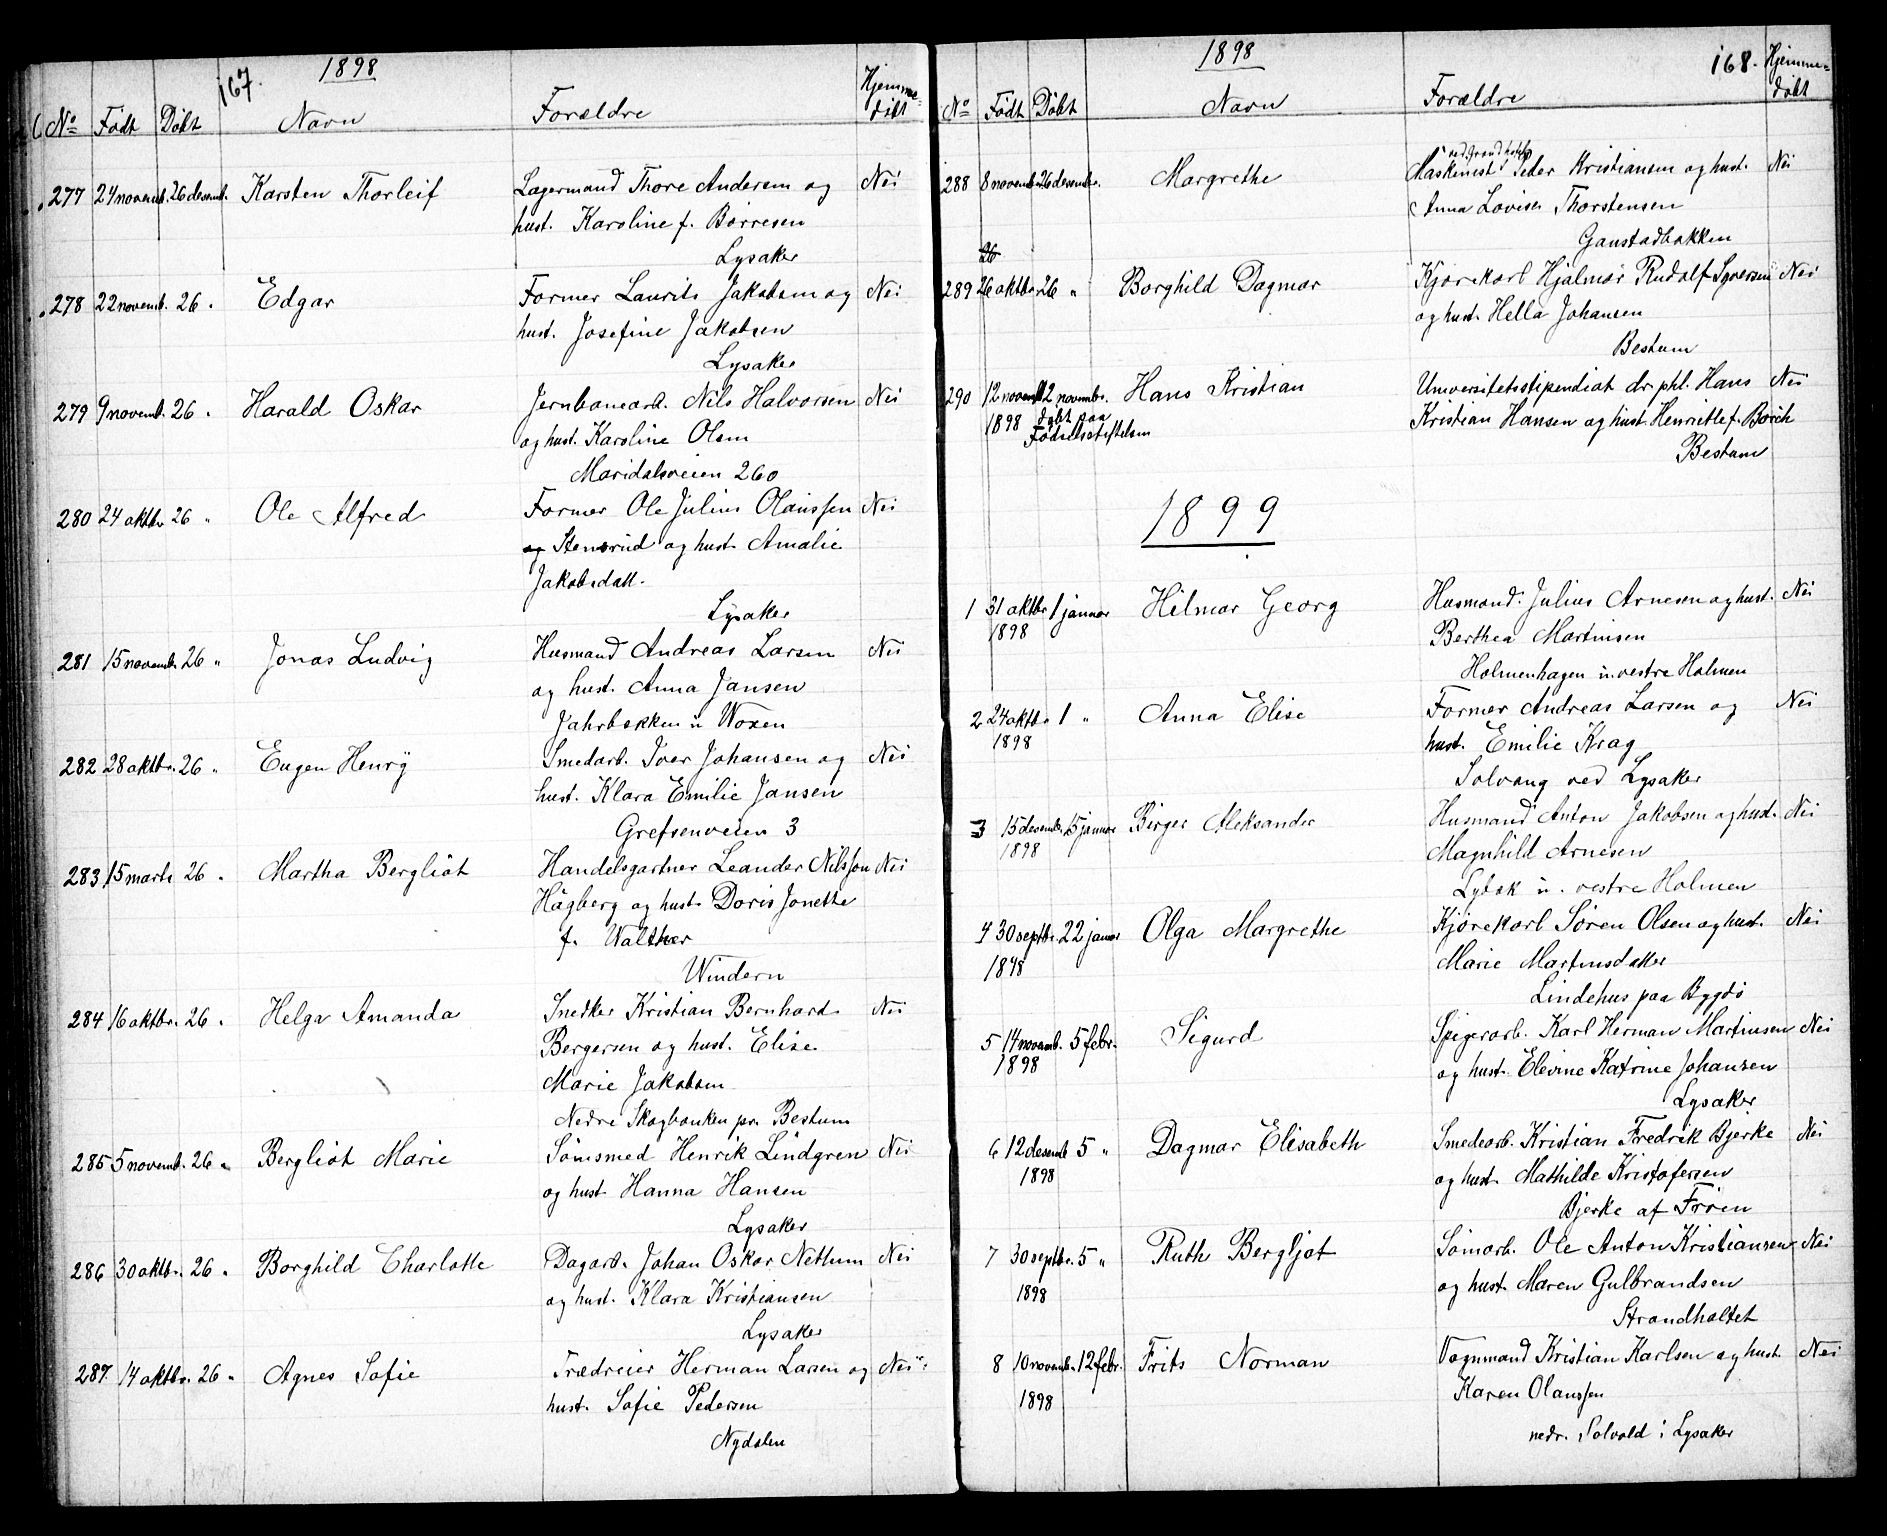 167.
1898
No Født Døbt Navn Forældre Hjemme-
døbt
277 24 novemb. 26 desemb. Karsten Thorleif Lagermand Thore Andersen og Nei
hust. Karoline f. Børresen
Lysaker
278 22 novemb. 26 " Edgar Former Laurits Jakobsen og Nei
hust. Josefine Jakobsen
Lysaker
279 9 novemb. 26 " Harald Oskar Jernbanearb. Nils Halvorsen Nei
og hust. Karoline Olsen
Maridalsveien 260
280 24 oktbr. 26 " Ole Alfred Former Ole Julius Olaussen Nei
og Stensrud og hust. Amalie
Jakobsdatt.
Lysaker
281 15 novemb. 26 " Jonas Ludvig Husmand Andreas Larsen Nei
og hust. Anna Jansen
Jahrbakken u. Woxen
282 28 oktbr. 26 " Eugen Henry Smedarb. Iver Johansen og Nei
hust. Klara Emilie Jansen
Grefsenveien 3
283 15 marts 26 " Martha Bergliot Handelsgartner Leander Nilsson Nei
Hågberg og hust. Doris Jonette
f. Walther
Windern
284 16 oktbr. 26 " Helga Amanda Snedker Kristian Bernhard Nei
Bergersen og hust. Elise
Marie Jakobsen
Nedre Skogbanken pr. Bestum
285 5 novemb. 26 " Bergliot Marie Sømsmed Henrik Lindgren Nei
og hust. Hanna Hansen
Lysaker
286 30 oktbr. 26 " Borghild Charlotte Dagarb. Johan Oskar Nettum Nei
og hust. Klara Kristiansen
Lysaker
287 14 oktbr. 26 " Agnes Sofie Trædreier Herman Larsen og Nei
hust. Sofie Pedersen
Nydalen
1898
168.
No Født Døbt Navn Forældre Hjemme-
døbt
ved Grand hotel
288 8 novemb. 26 desembr. Margrethe Maskinist Peder Kristiansen og hust. Nei
Anna Lovise Thorstensen
Gaustadbakken
26
289 26 oktbr. 26 " Borghild Dagmar Kjørekarl Hjalmar Rudolf Syversen Nei
og hust. Hella Johansen
Bestum
290 12 novemb. 12 novembr. Hans Kristian Universitetsstipendiat dr. phl. Hans Nei
1898 døbt paa Kristian Hansen og hust. Henriette f. Borch
Fødselsstiftelsen
Bestum
1899
1 31 oktbr. 1 januar Hilmar Georg Husmand Julius Arnesen og hust. Nei
1898 Berthea Martinsen
Holmenhagen u. vestre Holmen
2 24 oktbr. 1 " Anna Elise Former Andreas Larsen og Nei
1898 hust. Emilie Krag
Solvang ved Lysaker
3 15 desemb. 15 januar Birger Aleksander Husmand Anton Jakobsen og hust. Nei
1898 Magnhild Arnesen
Lybæk u. vestre Holmen
4 30 septbr. 22 januar Olga Margrethe Kjørekarl Søren Olsen og hust. Nei
1898 Marie Martinsdaker
Lindehus paa Bygdø
5 14 novemb. 5 febr. Sigurd Spigerarb. Karl Herman Martinsen Nei
1898 og hust. Elevine Katrine Johansen
Lysaker
6 12 desemb. 5 " Dagmar Elisabeth Smedearb. Kristian Fredrik Bjerke Nei
1898 og hust. Mathilde Kristofersen
Bjerke af Frøen
7 30 septbr. 5 " Ruth Bergljot Sømarb. Ole Anton Kristiansen Nei
1898 og hust. Maren Gulbrandsen
Strandholtet
8 10 novemb. 12 febr. Frits Norman Vognmand Kristian Karlsen og hust. Nei
1898 Karen Olaussen
nedr. Solvold i Lysaker